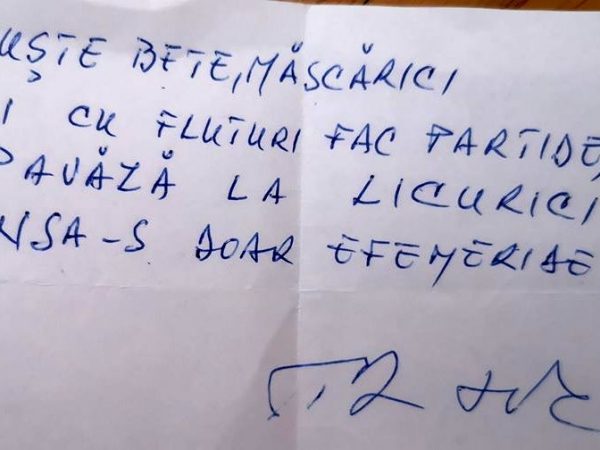 UȘTE BETE, MĂSCĂRICI
I CU FLUTURI FAC PARTIDE,
PAVĂZĂ LA LICURICI
NSA-S DOAR EFEMERIDE